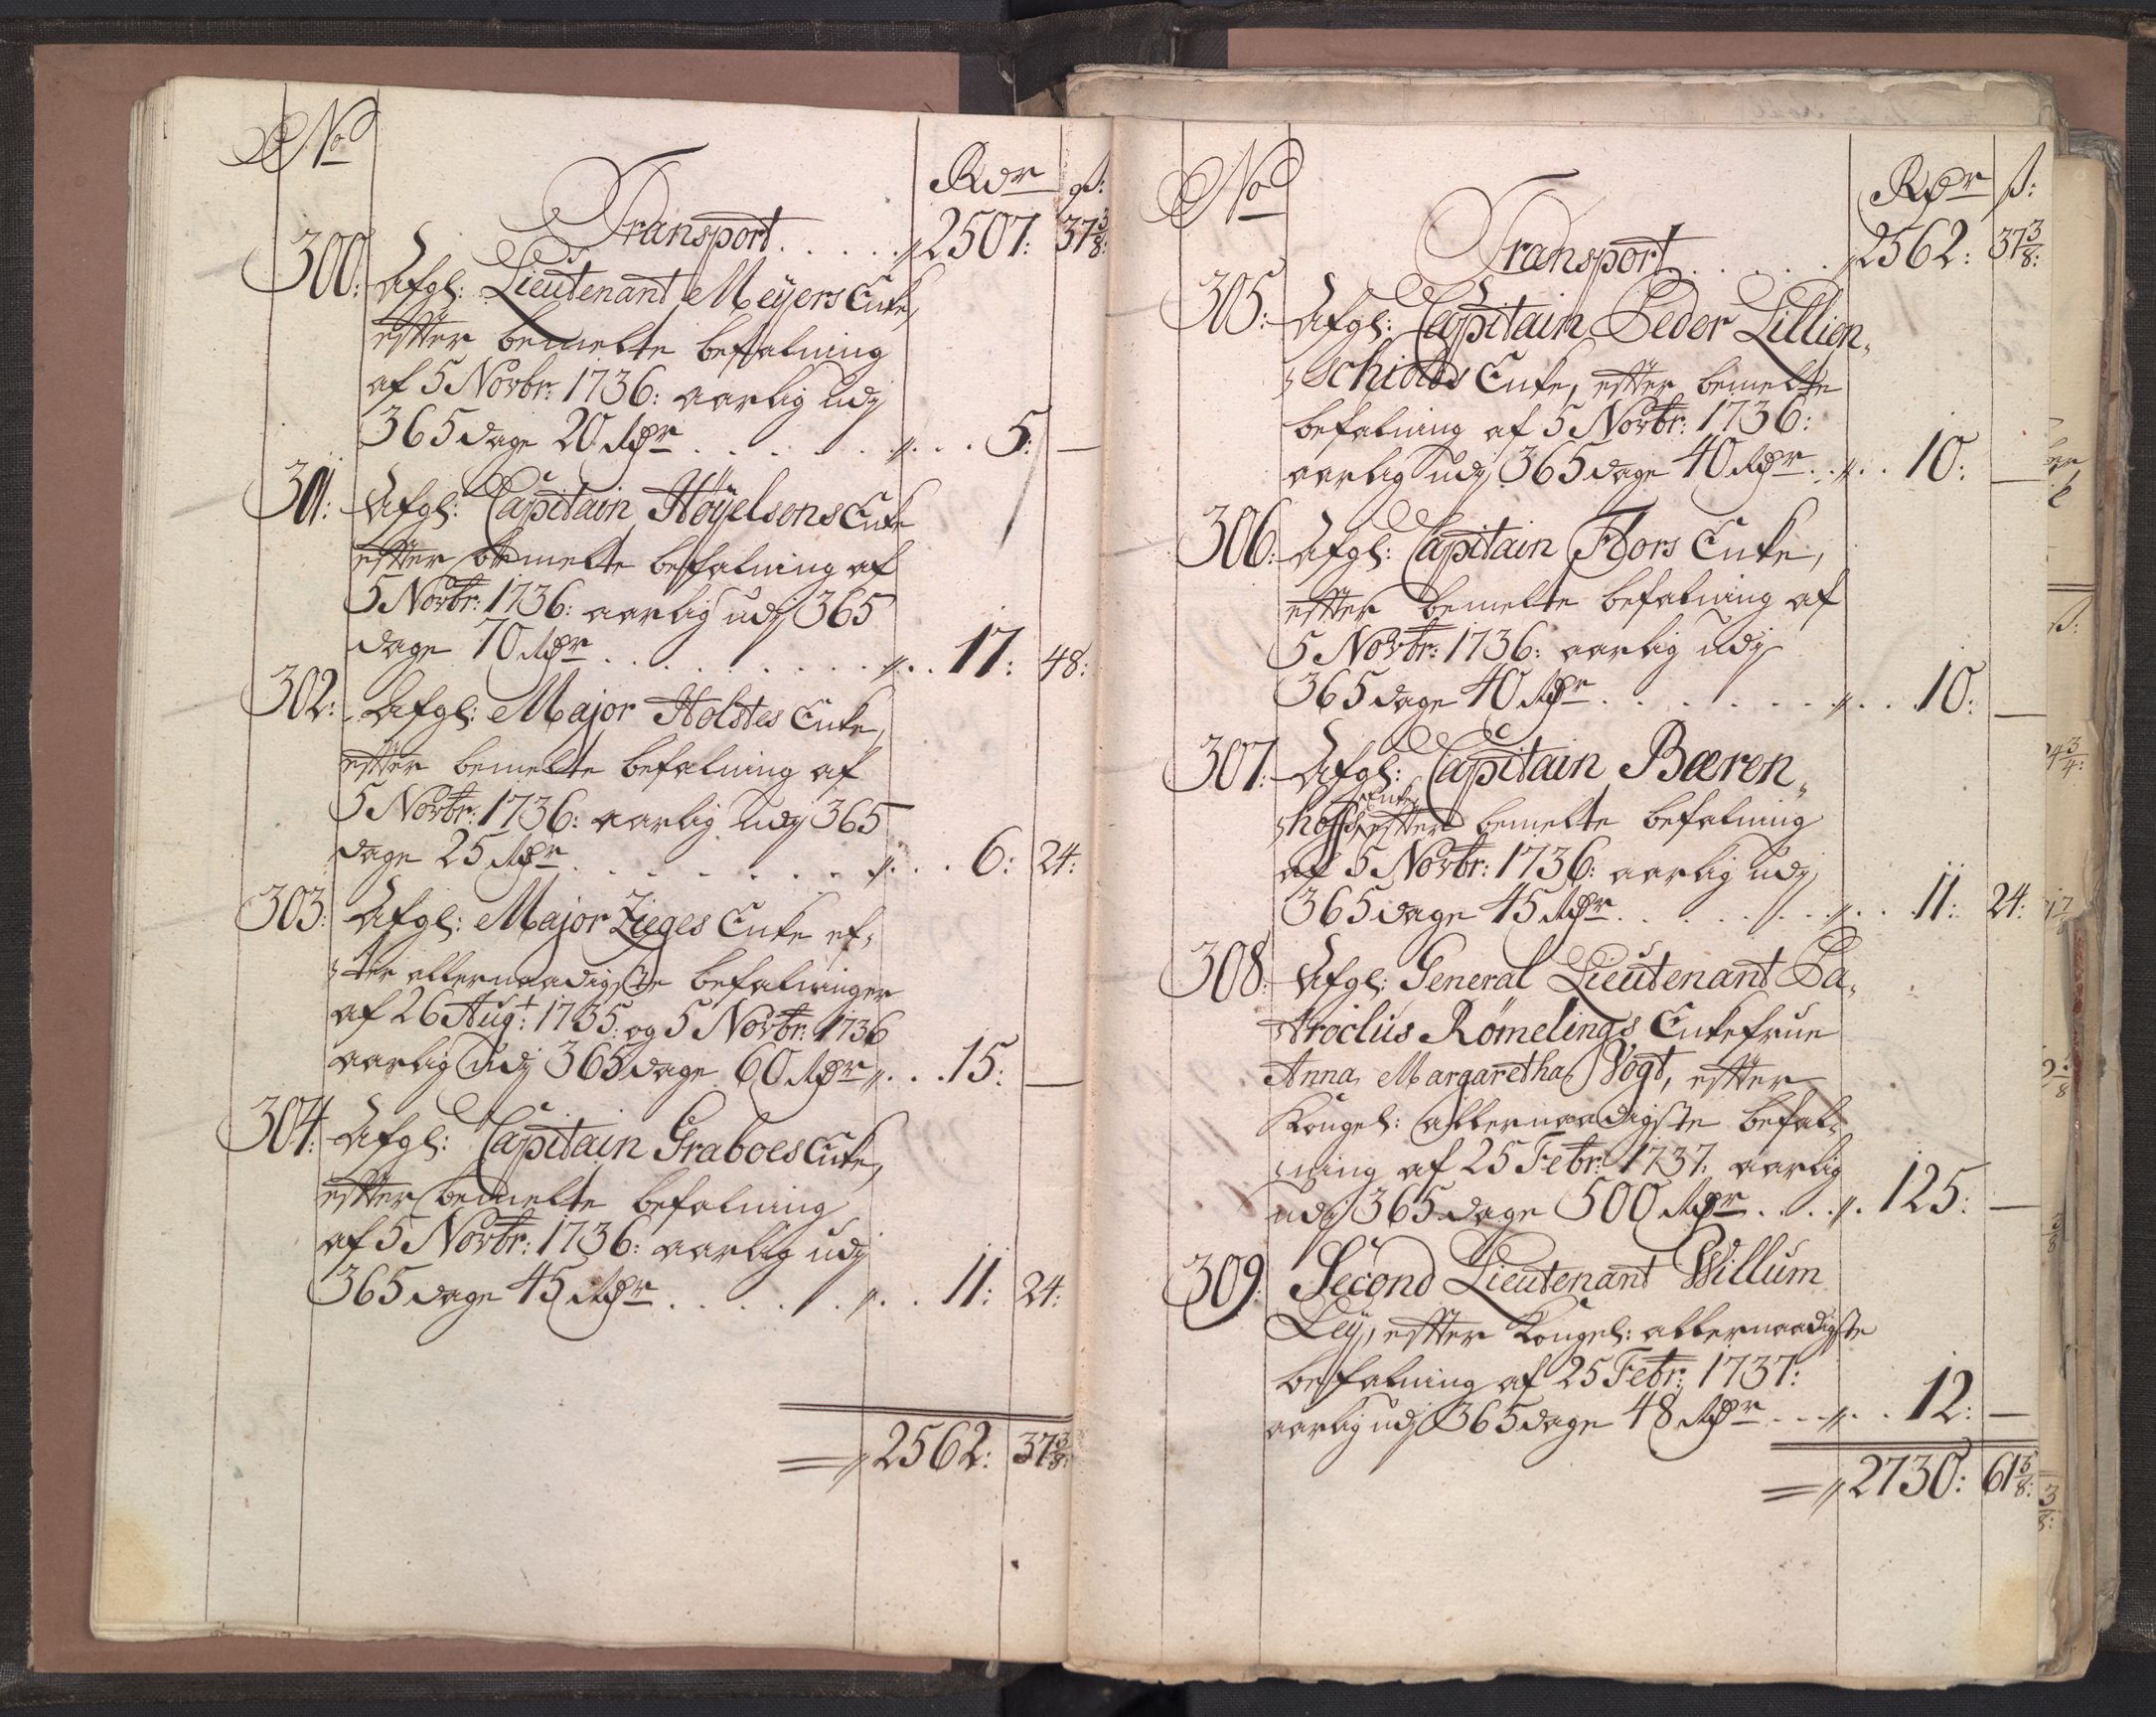 No
Rdr ß:
Transport . . . . . 2507: 37 3/8:
300: Afgl: Lieutenant Meyers Enke,
efter bemelte befalning
af 5 Novbr: 1736: aarlig udj
365 dage 20 Rdr . . . . . . . . 5: —
301: Afgl: Capitain Høyelsens Enke
efter bemelte befalning af
5 Novbr: 1736: aarlig udj 365
dage 70 Rdr . . . . . . . . . 17: 48:
302: Afgl: Major Holstes Enke,
efter bemelte befalning af
5 Novbr: 1736: aarlig udj 365
dage 25 Rdr . . . . . . . . . 6: 24:
303: Afgl: Major Zieges Enke ef-
ter allernaadigste befalninger
af 26 Aug:t 1735: og 5 Novbr: 1736
aarlig udj 365 dage 60 Rdr . . . 15: —
304: Afgl: Capitain Graboes Enke,
efter bemelte befalning
af 5 Novbr: 1736: aarlig udj
365 dage 45 Rdr . . . . . . . 11: 24:
2562: 37 3/8:
No
Rdr ß:
Transport . . . . . 2562: 37 3/8:
305: Afgl: Capitain Peder Lillien-
schiolds Enke, efter bemelte
befalning af 5 Novbr: 1736:
aarlig udj 365 dage 40 Rdr . . . 10: —
306: Afgl: Capitain Hors Enke,
efter bemelte befalning af
5 Novbr: 1736: aarlig udj
365 dage 40 Rdr . . . . . . . . 10: —
307: Afgl: Capitain Bæren-
hoffs Enke, efter bemelte befalning
af 5 Novbr: 1736: aarlig udj
365 dage 45 Rdr . . . . . . . . 11: 24:
308: Afgl: General Lieutenant Pa-
troclus Rømelings Enkefrue
Anna Margaretha Vogt, efter
Kongel: allernaadigste befal-
ning af 25 Febr: 1737: aarlig
udj 365 dage 500 Rdr . . . . 125: —
309: Second Lieutenant Willum
Ley, efter Kongel: allernaadigste
befalning af 25 Febr: 1737:
aarlig udj 365 dage 48 Rdr . . . 12: —
2730: 61 3/8: